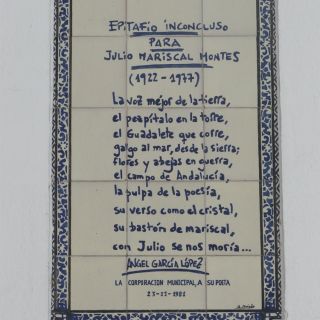 EPITAFIO INCONCLUSO
PARA
JULIO MARISCAL MONTES
(1922-1977)
La voz mejor de la tierra,
el pespitalo en la torre,
el Guadalete que corre,
galgo al mar, desde la sierra;
flores y abejas en guerra,
el campo de Andalucía,
la pulpa de la poesía,
su verso como el cristal,
su bastón de mariscal,
con Julio se nos moría...
ANGEL GARCÍA LÓPEZ
LA CORPORACION MUNICIPAL A SU POETA